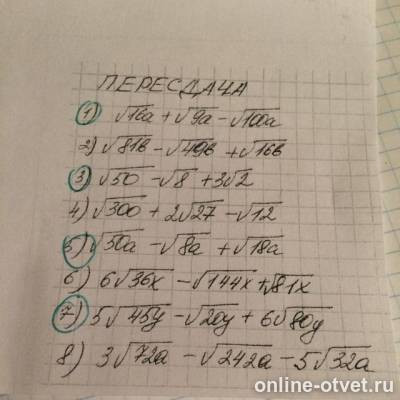 ПЕРЕСДАЧА
1) √16a + √9a - √100a
2) √81в - √49в + √16в
3) √50 - √8 + 3√2
4) √300 + 2√27 - √12
5) √50a - √8a + √18a
6) 6√36x - √144x + √81x
7) 5√45y - √20y + 6√80y
8) 3√72a - √242a - 5√32a
online-otvet.ru